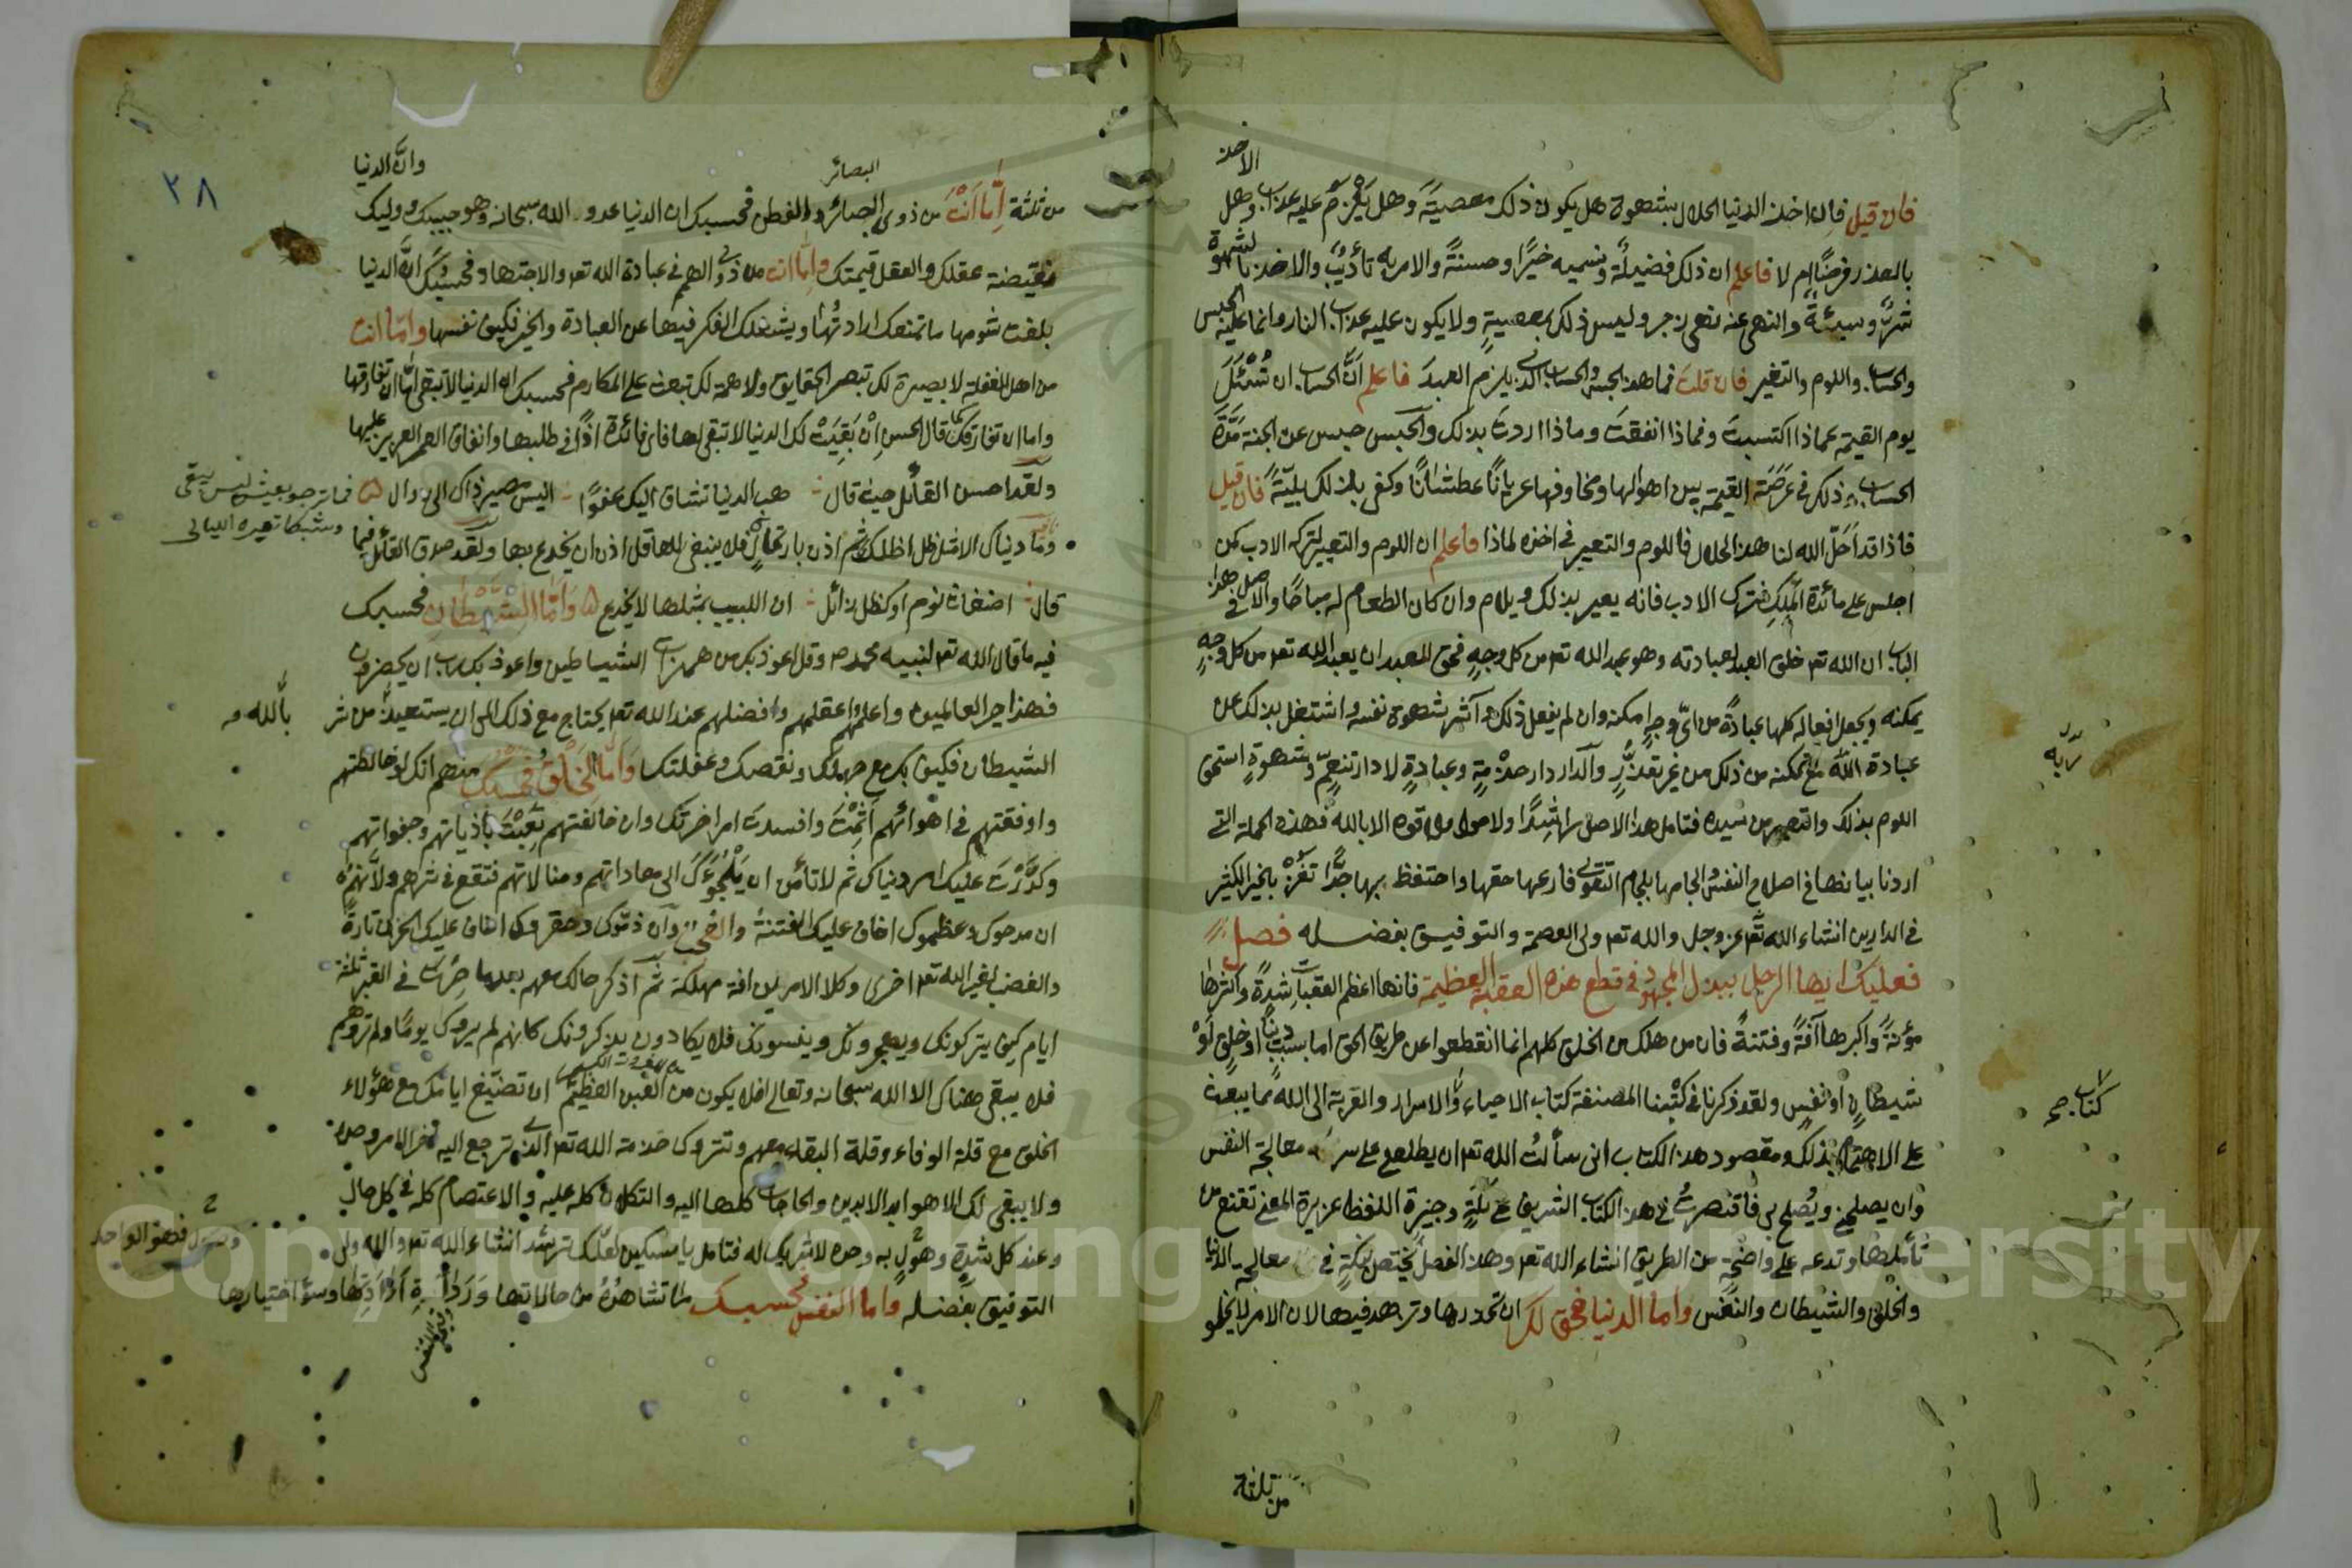 الاخذ
فان قيل فان اخذ الدنيا الحلال بشهوة هل يكون ذلك معصية وهل يلزم عليه عذاب وهل
بالعذر فرض ام لا فاعلم ان ذلك فضيلة ونسميه خيرًا وحسنةً والامر به تأديب والاخذ بالشهوة
شرًّ وسيئةً والنهي عنه نهي زجر وليس ذلك بمعصيةٍ ولا يكون عليه عذاب النار وانما عليه الحبس
والحساب واللوم والتعيير فان قلت فما هذا الحبس والحساب الذي يلزم العبد فاعلم انَّ الحساب ان تُسْئَلَ
يوم القيمة عماذا اكتسبت وفماذا انفقت وماذا اردت بذلك والحبس حبس عن الجنة مَدَّةَ
الحساب ذلك في عَرَصَة القيمة بين اهوالها ومخاوفها عريانًا عطشانًا وكفى بذلك بليّةً فان قيل
فاذا قد اَحَلّ الله لنا هذا الحلال فاللوم والتعيير في اخذه لماذا فاعلم ان اللوم والتعيير لترك الادب كمن
اجلس على مائدة المَلِكِ فترك الادب فانه يعير بذلك ويلام وان كان الطعام له مباحًا والاصل في هذا
الباب ان الله تعـ خلق العبد لعبادته وهو عبد الله تعـ من كل وجهٍ فحق للعبد ان يعبد الله تعـ من كل وجهٍ
يمكنه ويجعل افعاله كلها عبادةً من ايّ وجهٍ امكنه وان لم يفعل ذلك وآثر شهوة نفسه واشتغل بذلك عن
عبادة الله مع تمكنه من ذلك من غير تعذّرٍ والدار دار خدْمةٍ وعبادةٍ لا دار تنعمٍّ وشهوةٍ استحق
ربّه
اللوم بذلك والتعيير من سيده فتامل هذا الاصل راشِدًا ولا حول ولا قوة الا بالله فهذه الجملة التي
اردنا بيانها في اصلاح النفس والجامها بلجام التقوى فارعها حقها واحتفظ بها جدًّا تفُزْ بالخير الكثير
في الدارين انشاء الله تعـ عز وجل والله تعـ ولي العصمة والتوفيق بفضله فصل
فعليك ايها الرجل ببذل المجهود في قطع هذه العقبة العظيمة فانها اعظم العقبات شدةً واكثرها
مؤنةً واكبرها آفةً وفتنةً فان من هلك من الخلق كلهم انما انقطعوا عن طريق الحق اما بسبب دنيا او خلقٍ اَوْ
شيطانٍ او نفسٍ ولقد ذكرنا في كتبنا المصنفة كتاب الاحياء والاسرار والقربة الى الله ما يبعث
كتاب صح
على الاهتمام بذلك ومقصود هذا الكتاب اني سألتُ الله تعـ ان يطلعني على سر معالجة النفس
وان يصلحني ويُصلح بي فاقتصرتُ في هذا الكتاب الشريف على نكتةٍ وجيزة اللفظ غزيرة المعنى تقنع من
تأملها وتدعه على واضحةٍ من الطريق انشاء الله تعـ وهذا الفصل يختص بنكتةٍ في معالجة الدنيا
والخلق والشيطان والنفس واما الدنيا فحق لك ان تحذرها وتزهد فيها لان الامر لا يخلو
من ثلثة
٣٨
البصائر
وانّ الدنيا
من ثلثة اِمّا اَنْتَ من ذوى البصائر والفطن فحسبك ان الدنيا عدو الله سبحانه وهو حبيبك ووليك
منقيضة عقلك والعقل قيمتك وامّا انت من ذوى الهمم في عبادة الله تعـ والاجتهاد فحسبك انّ الدنيا
بلغت شومها ما تمنعك ارادتُها ويشغلك الفكر فيها عن العبادة والخير فكيف نفسها وامّا انت
من اهل الغفلة لا بصيرة لك تبصر الحقايق ولا همة لك تبعث على المكارم فحسبك ان الدنيا لا تبقى امّا ان تفارقها
واما ان تفارقك كما قال الحسن اِنْ بَقِيَتْ لك الدنيا لا تبقى لها فاى فائدة اذًا في طلبها وانفاق العمر العزيز عليها
ولقد احسن القائل حيث قال هب الدنيا تساق اليك عفوًا اليس مصير ذاك الى زوال
فما ترجو بعيش ليس يبقى
وشيكا تغيره الليالى
وما دنياك الا مثل ظل اظلك ثم اذن بارتحالٍ فلا ينبغى للعاقل اذن ان يخدع بها ولقد صدق القائل فيما
قال اضغاث نوم او كظل زائل ان اللبيب بمثلها لا يخدع وَاَمَّا الشَّيْطَانُ فحسبك
فيه ما قال الله تعـ لنبيه محمد صـ وقل اعوذ بك من همزات الشياطين واعوذ بك رب ان يحضرون
فهذا خير العالمين واعلمهم واعقلهم وافضلهم عند الله تعـ يحتاج مع ذلك الى ان يستعيذ من شر
بالله صـ
الشيطان فكيف بك مع جهلك ونقصك وغفلتك وَاَمَّا الخَلْقُ فحسبك منهم انك لو خالطتهم
واوفقتهم في اهوائهم اَثِمْتَ وافسدت امر اخرتك وان خالفتهم تَعِبْتَ باذياتهم وجفواتهم
وكدَّرْتَ عليك امر دنياك ثم لا تأمن ان يَلْجؤك الى معاداتهم ومنالاتهم فتقع في شرهم ولاَنهم
ان مدحوك وعظموك اخاف عليك الفتنة والعجب وان ذمّوك وحقروك اخاف عليك الحزن تارةً
والغضب لغير الله تعـ اخرى وكلا الامرين افة مهلكة ثم اذكر حالك معهم بعدما صرت في القبر ثلثة
ايام كيف يتركونك ويهجرونك وينسونك فلا يكادون يذكرونك كانهم لم يروك يومًا ولم تروهم
فلا يبقى هناك الا الله سبحانه وتعالى افلا يكون من الغبن العظيم ان تضيّع ايامك مع هؤلاء
الخلق مع قلة الوفاء وقلة البقاء معهم وتترك خدمة الله تعـ الذى ترجع اليه اخر الامر وحده
ولا يبقى لك الا هو ابد الابدين والحاجات كلها اليه والتكلان كله عليه والاعتصام كله في كل حالٍ
وعند كل شدةٍ وهولٍ به وحده لا شريك له فتامل يا مسكين لعلّك ترشد انشاء الله تعـ والله ولى
فهو الواحد
التوفيق بفضله واما النفس فحسبك ما تشاهدُهُ من حالاتها وَرَدَاءَةِ اِرَادَتِها وسوء اختيارها